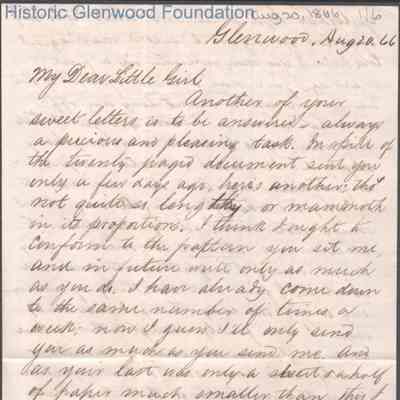 Historic Glenwood Foundation
Glenwood, Aug 20, 66
My Dear Little Girl
Another of your
sweet letters is to be answered - always
a precious and pleasing task. In spite of
the twenty paged document sent you
only a few days ago, here's another; tho'
not quite so lengthy or mammoth
in its proportions. I think I ought to
conform to the pattern you set me,
and in future write only as much
as you do. I have already come down
to the same number of times a
week; now I guess I'll only send
you as much as you send me. And
as your last was only a sheet & a half
of paper much smaller than this I